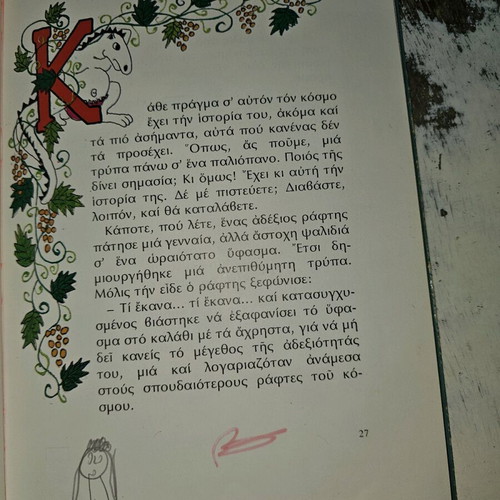 Κάθε πράγμα σ' αὐτόν τόν κόσμο
ἔχει τήν ἱστορία του, ἀκόμα καί
τά πιό ἀσήμαντα, αὐτά πού κανένας δέν
τά προσέχει. Ὅπως, ἄς ποῦμε, μιά
τρύπα πάνω σ' ἕνα παλιόπανο. Ποιός τῆς
δίνει σημασία; Κι ὅμως! Ἔχει κι αὐτή τήν
ἱστορία της. Δέ μέ πιστεύετε; Διαβάστε,
λοιπόν, καί θά καταλάβετε.
Κάποτε, πού λέτε, ἕνας ἀδέξιος ράφτης
πάτησε μιά γενναία, ἀλλά ἄστοχη ψαλιδιά
σ' ἕνα ὡραιότατο ὕφασμα. Ἔτσι δη-
μιουργήθηκε μιά ἀνεπιθύμητη τρύπα.
Μόλις τήν εἶδε ὁ ράφτης ξεφώνισε:
– Τί ἔκανα... τί ἔκανα... καί κατασυγχυ-
σμένος βιάστηκε νά ἐξαφανίσει τό ὕφα-
σμα στό καλάθι μέ τά ἄχρηστα, γιά νά μή
δεῖ κανείς τό μέγεθος τῆς ἀδεξιότητάς
του, μιά καί λογαριαζόταν ἀνάμεσα
στούς σπουδαιότερους ράφτες τοῦ κό-
σμου.
27